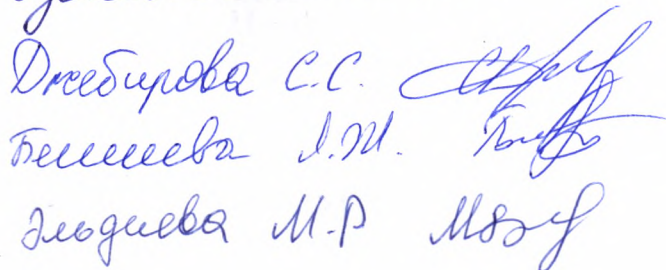 Джебирова С.С.
Бешиева Л.Ж.
Эльдиева М.Р